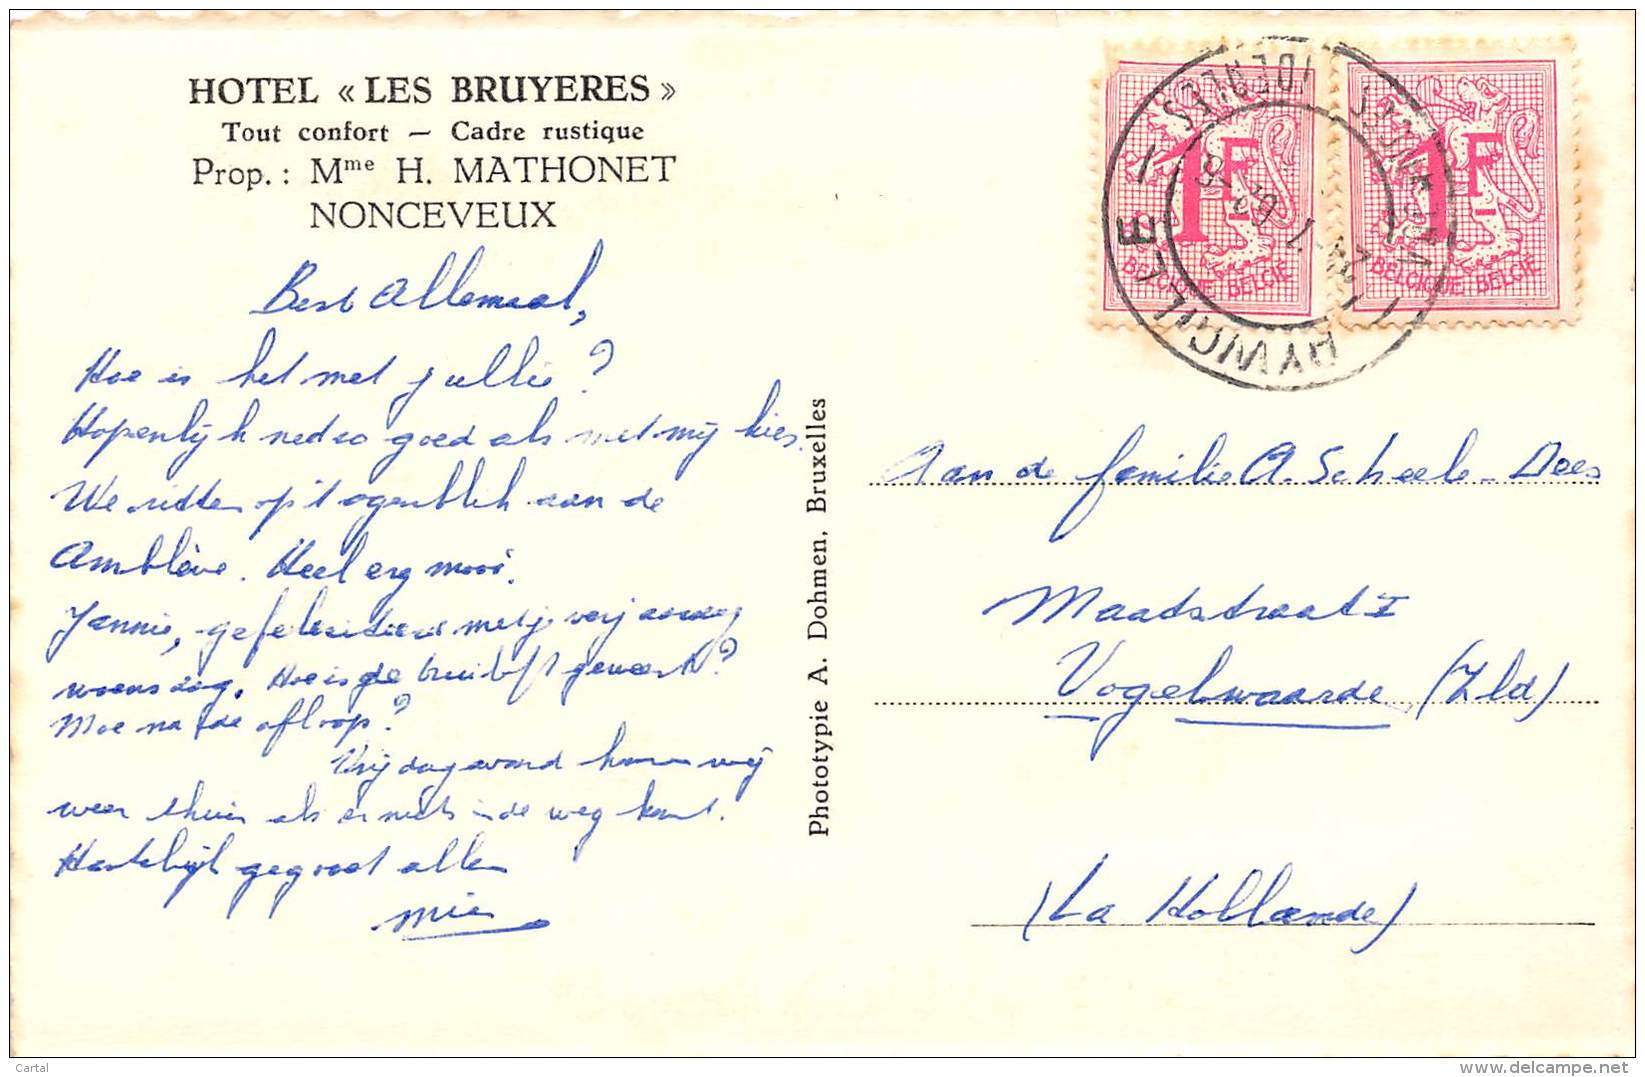 HOTEL « LES BRUYERES »
Tout confort — Cadre rustique
Prop. : Mme H. MATHONET
NONCEVEUX
Best Allemaal,
Hoe is het met jullie?
Hopenlijk net zo goed als met mij hier.
We zitten op 't ogenblik aan de
Amblève. Heel erg mooi.
Jannie, gefeliciteerd met je verjaardag
woensdag. Hoe is de bruiloft geweest?
Moe na de afloop?
Vrijdagavond komen wij
weer thuis als er niets in de weg komt.
Hartelijk gegroet allen
Mien
Phototypie A. Dohmen, Bruxelles
1F
BELGIQUE BELGIË
1F
BELGIQUE BELGIË
AYWAILLE
Aan de familie A. Scheele-Dees
Maatstraat I
Vogelwaarde (Zld)
(La Hollande)
Cartal
delcampe.net